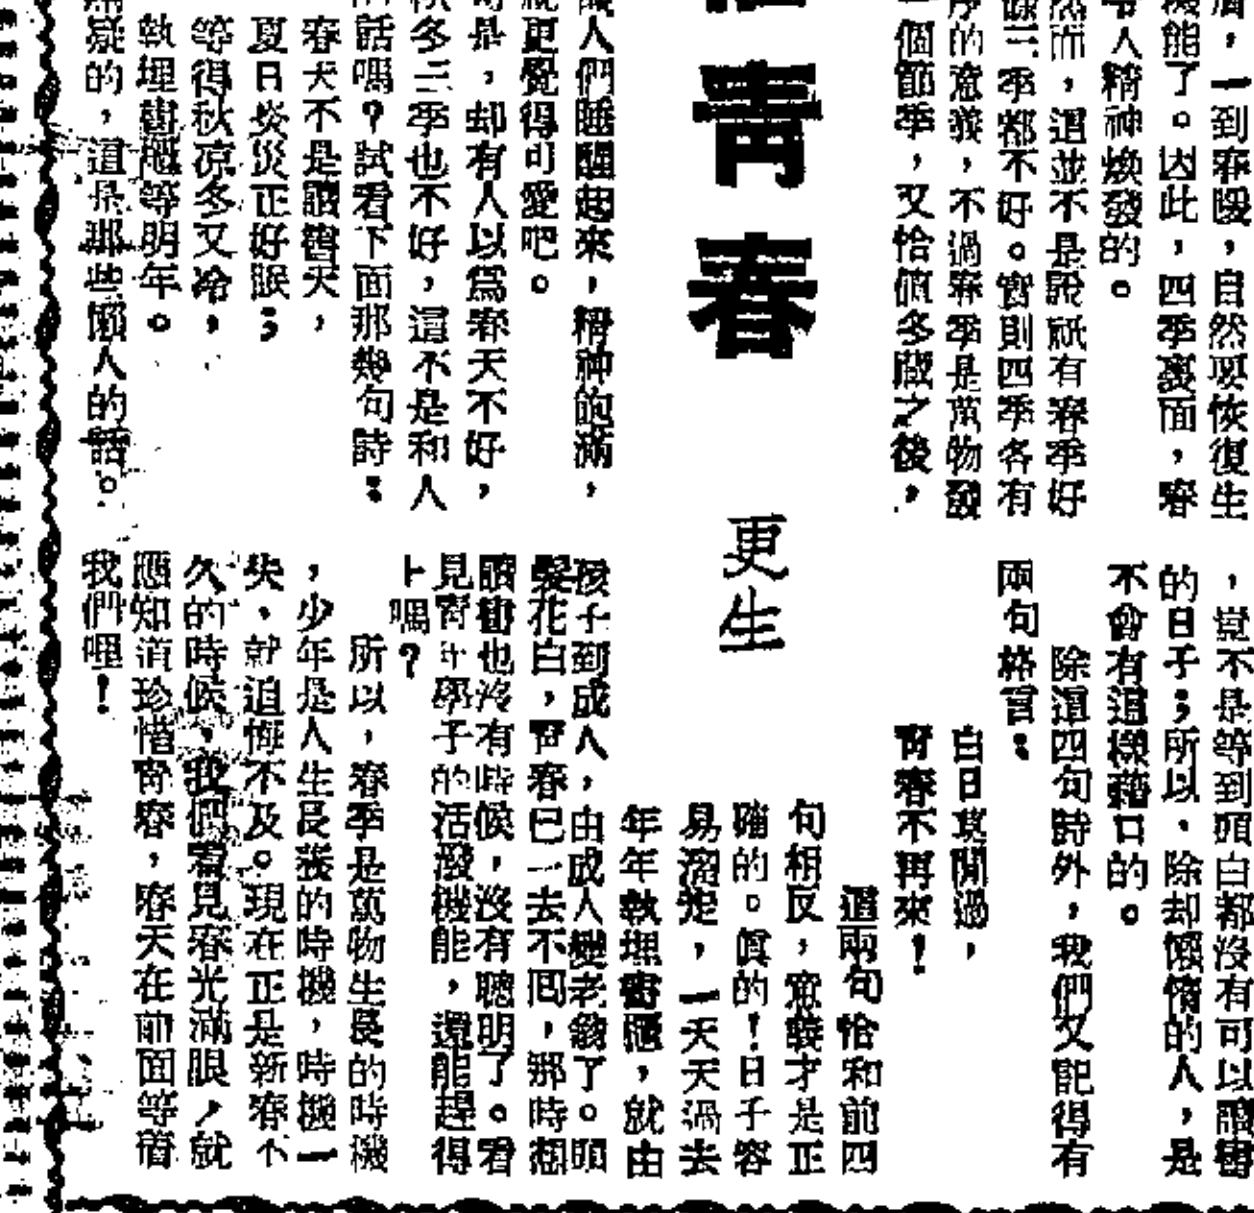 ，一到春暖，自然要恢復生
機能了。因此，四季裏面，春
令人精神煥發的。
然而，這並不是說祇有春季好
餘三季都不好。實則四季各有
的意義，不過春季是萬物發
一個節季，又恰值冬藏之後，
青春
更生
人們睡醒起來，精神飽滿，
就更覺得可愛吧。
是，却有人以爲春天不好，
秋冬三季也不好，這不是和人
話嗎？試看下面那幾句詩：
春天不是讀書天，
夏日炎炎正好眠；
等得秋涼冬又冷，
執埋書櫃等明年。
疑的，這是那些懶人的話。
，豈不是等到頭白都沒有可以讀書
的日子；所以，除却懶惰的人，是
不會有這樣藉口的。
除這四句詩外，我們又記得有
兩句格言：
白日莫閒過，
青春不再來！
這兩句恰和前四
句相反，意義才是正
確的。眞的！日子容
易溜走，一天天過去
年年執埋書櫃，就由
孩子到成人，由成人變老翁了。頭
髮花白，靑春已一去不回，那時想
讀書也沒有時候，沒有聰明了。看
見靑年學子的活潑機能，還能趕得
上嗎？
所以，春季是萬物生長的時機
，少年是人生長養的時機，時機一
失，就追悔不及。現在正是新春不
久的時候，我們看見春光滿眼，就
應知道珍惜靑春，春天在前面等着
我們哩！